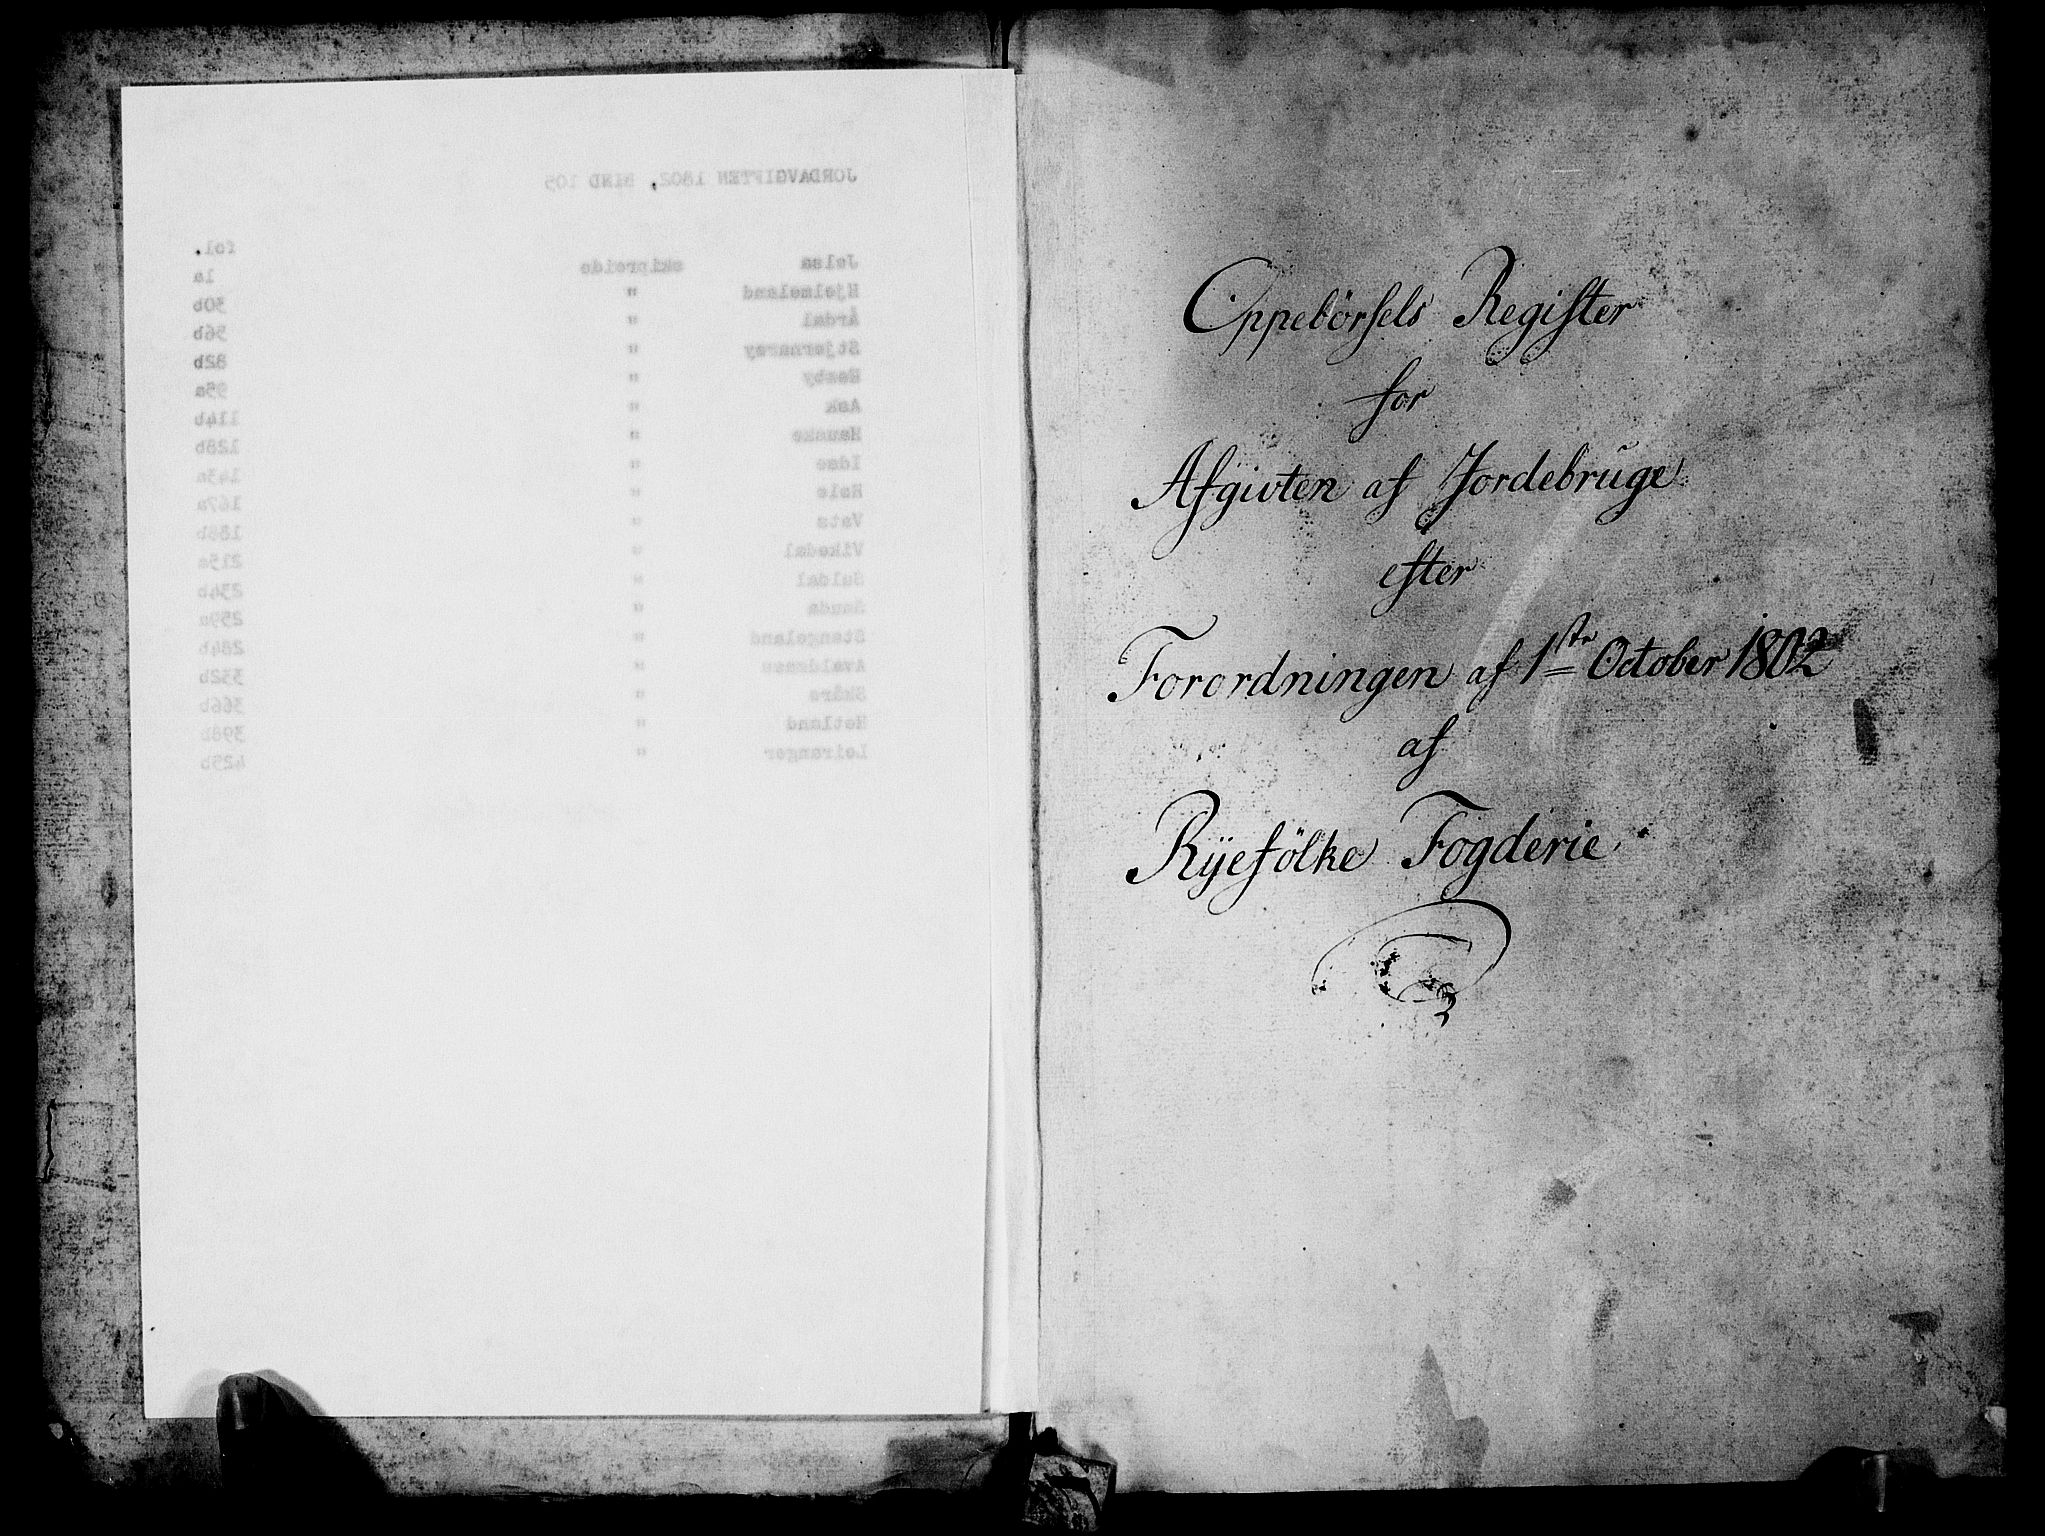 JORDAVGIFTEN 1802, BIND 105
fol.
Jelsa skipreide 1a
Hjelmeland " 30b
Årdal " 56b
Stjernarøy " 82b
Hesby " 95a
Ask " 114b
Hauske " 128b
Idse " 143a
Hele " 167a
Vats " 188b
Vikedal " 215a
Suldal " 234b
Sauda " 259a
Stangeland " 284b
Avaldsnes " 332b
Skåre " 366b
Hetland " 398b
Leiranger " 425b
Oppebörsels Register
for
Afgivten af Jordebruge
efter
Forordningen af 1ste October 1802
af
Ryefölke Fogderie